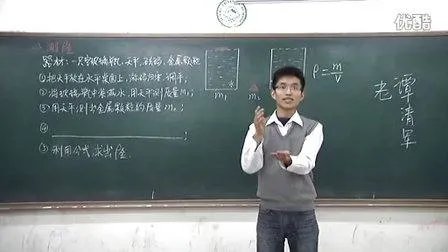 优酷
测
器材:一只空玻璃瓶,天平,金属颗粒
①把天平放在水平桌面上,游码归零,调平;
②满玻璃瓶中装满水,用天平测质量m₁;
③用天平测出金属颗粒的质量m₂;
④
⑤利用公式,求出
水
m₁
m₂
ρ=m/V
老谭
清军